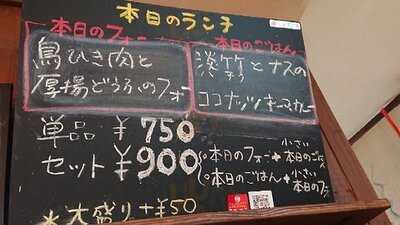 本日のランチ
本日のフォー
鳥ひき肉と
厚揚どうふのフォー
本日のごはん
淡竹とナスの
ココナッツキーマカレー
単品 ¥750
セット ¥900
本日のフォー+小さい本日のごはん
本日のごはん+小さい本日のフォー
*大盛り+¥50